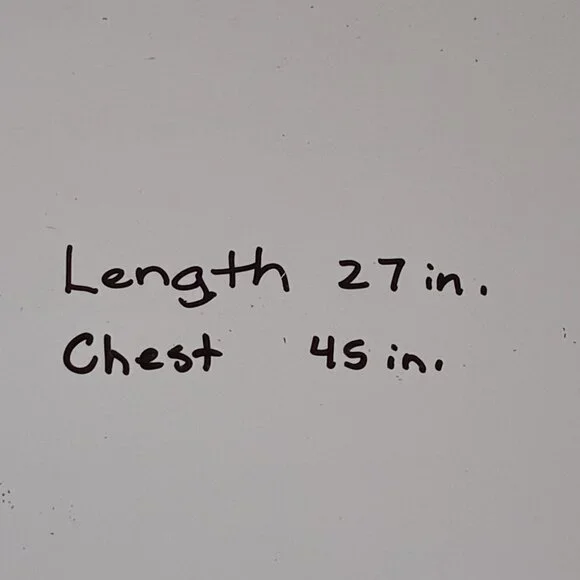 Length 27 in.
Chest 45 in.